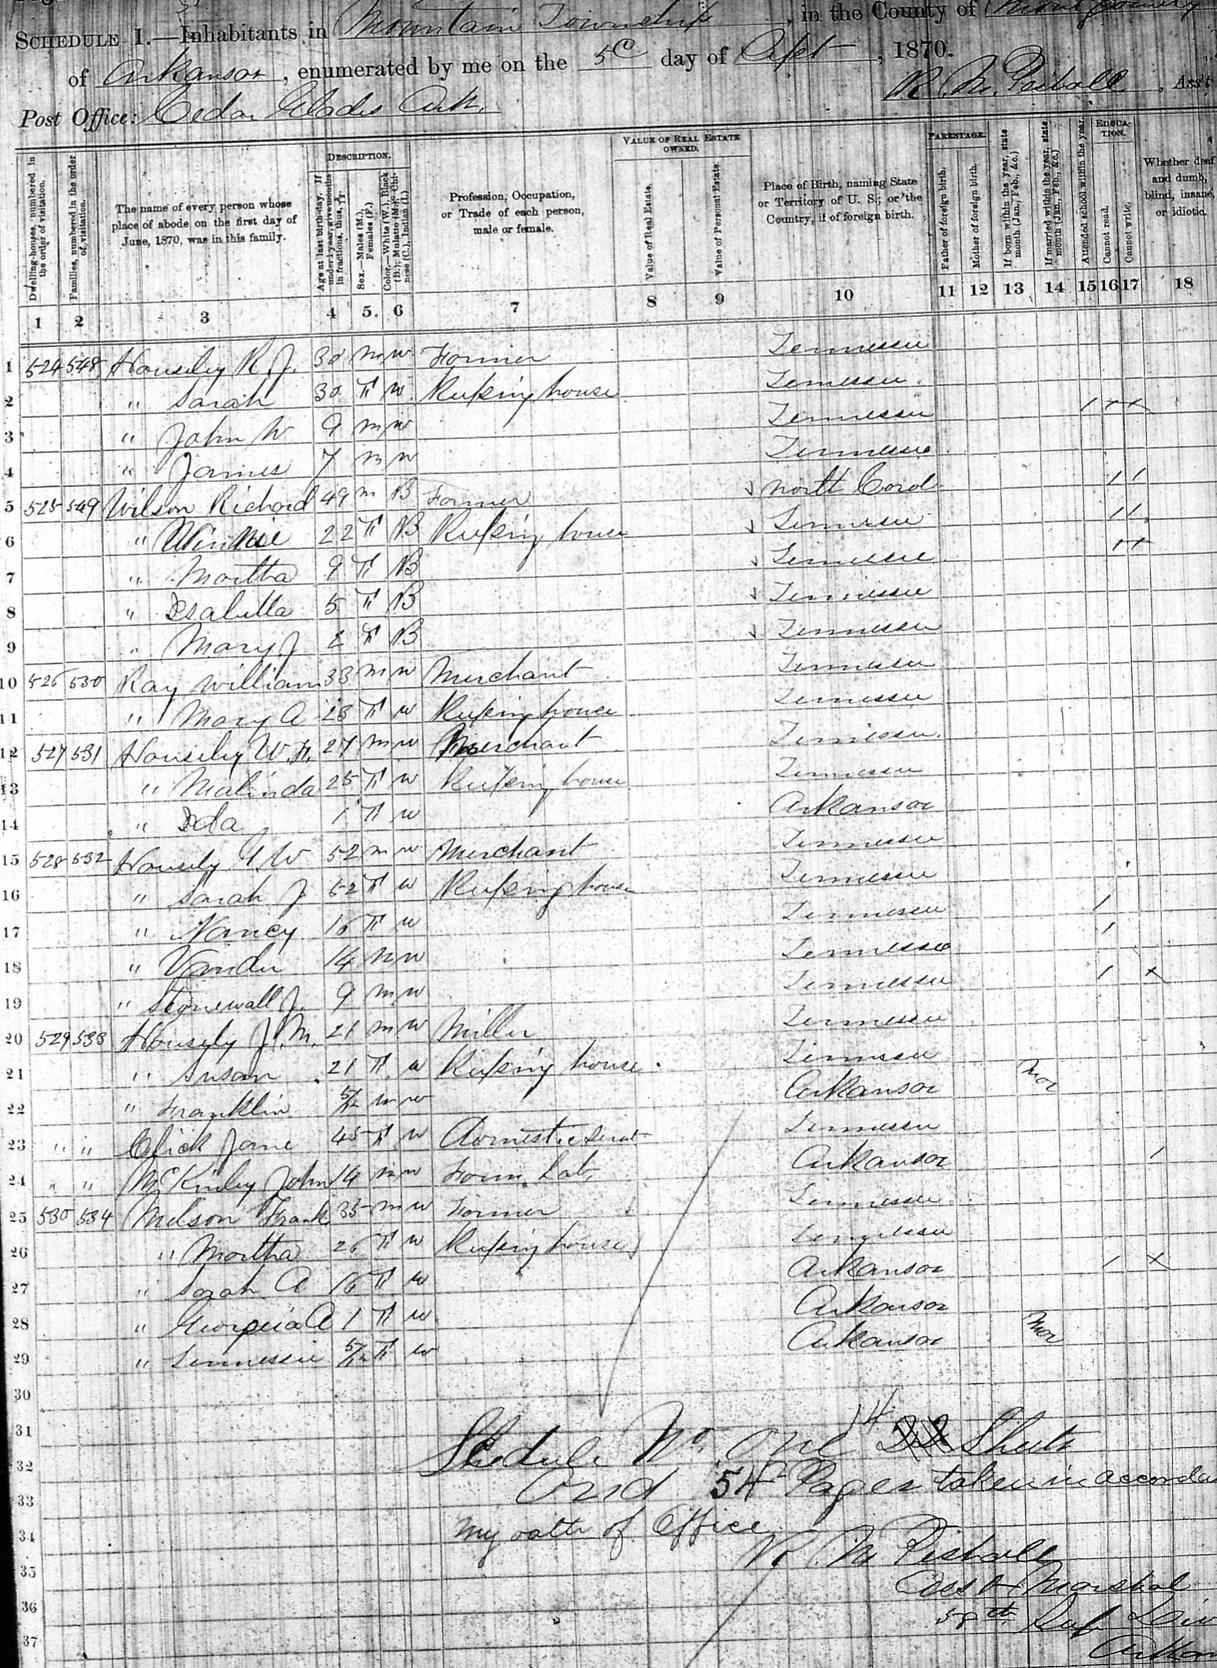 SCHEDULE 1.—Inhabitants in Mountain Township, in the County of Montgomery
of Arkansas, enumerated by me on the day of Sept, 1870.
Post Office: Cedar Glades Ark.
R. M. , Ass't
Dwelling-houses, numbered in the order of visitation.
Families, numbered in the order of visitation.
The name of every person whose place of abode on the first day of June, 1870, was in this family.
DESCRIPTION.
Age at last birth-day. If under 1 year, give months in fractions, thus,
Sex.—Males (M.), Females (F.)
Color.—White (W.), Black (B.), Mulatto (M.), Chinese (C.), Indian (I.)
Profession, Occupation, or Trade of each person, male or female.
VALUE OF REAL ESTATE OWNED.
Value of Real Estate.
Value of Personal Estate.
Place of Birth, naming State or Territory of U. S.; or the Country, if of foreign birth.
PARENTAGE.
Father of foreign birth.
Mother of foreign birth.
If born within the year, state month (Jan., Feb., &c.)
If married within the year, state month (Jan., Feb., &c.)
Attended school within the year.
EDUCATION.
Cannot read.
Cannot write.
Whether deaf and dumb, blind, insane, or idiotic.
1 2 3 4 5. 6 7 8 9 10 11 12 13 14 15 16 17 18
1 524 548 Housely R. J. 30 m w Farmer Tennessee
2 " Sarah 30 F w Keeping house Tennessee
3 " John W 9 m w Tennessee
4 " James 7 m w Tennessee
5 525 549 Wilson Richard 49 m B Farmer North Carol
6 " Winnie 22 F B Keeping house Tennessee
7 " Martha 9 F B Tennessee
8 " Isabella 5 F B Tennessee
9 " Mary J F B Tennessee
10 526 530 Ray William 33 m w Merchant Tennessee
11 " Mary A F w Keeping house Tennessee
12 527 531 Housely W. 27 m w Merchant Tennessee
13 " Malinda 25 F w Keeping house Tennessee
14 " Ida 1 F w Arkansas
15 528 532 Housely W 52 m w Merchant Tennessee
16 " Sarah J 52 F w Keeping house Tennessee
17 " Nancy 16 F w Tennessee
18 " 14 m w Tennessee
19 " Stonewall J. 9 m w Tennessee
20 529 533 Housely J. M. 21 m w Miller Tennessee
21 " Susan 21 F w Keeping house Tennessee
22 " Franklin 5/12 m w Arkansas Mar
23 " " Click Jane 45 F w Domestic Servt Tennessee
24 " " McKinley John 14 m w Farm Lab. Arkansas
25 530 534 Nelson Frank 35 m w Farmer Tennessee
26 " Martha 26 F w Keeping house Tennessee
27 " Sarah A F w Arkansas
28 " Georgeia A 1 F w Arkansas
29 " Tennessee 5/12 F w Arkansas Mar
30
31
32 Shedule No. one 14 Sheets
33 and 54 Pages taken in accordan
34 my oath of Office
35 R. M.
36 Asst Marshal
37 58th Sub Div
Arkan